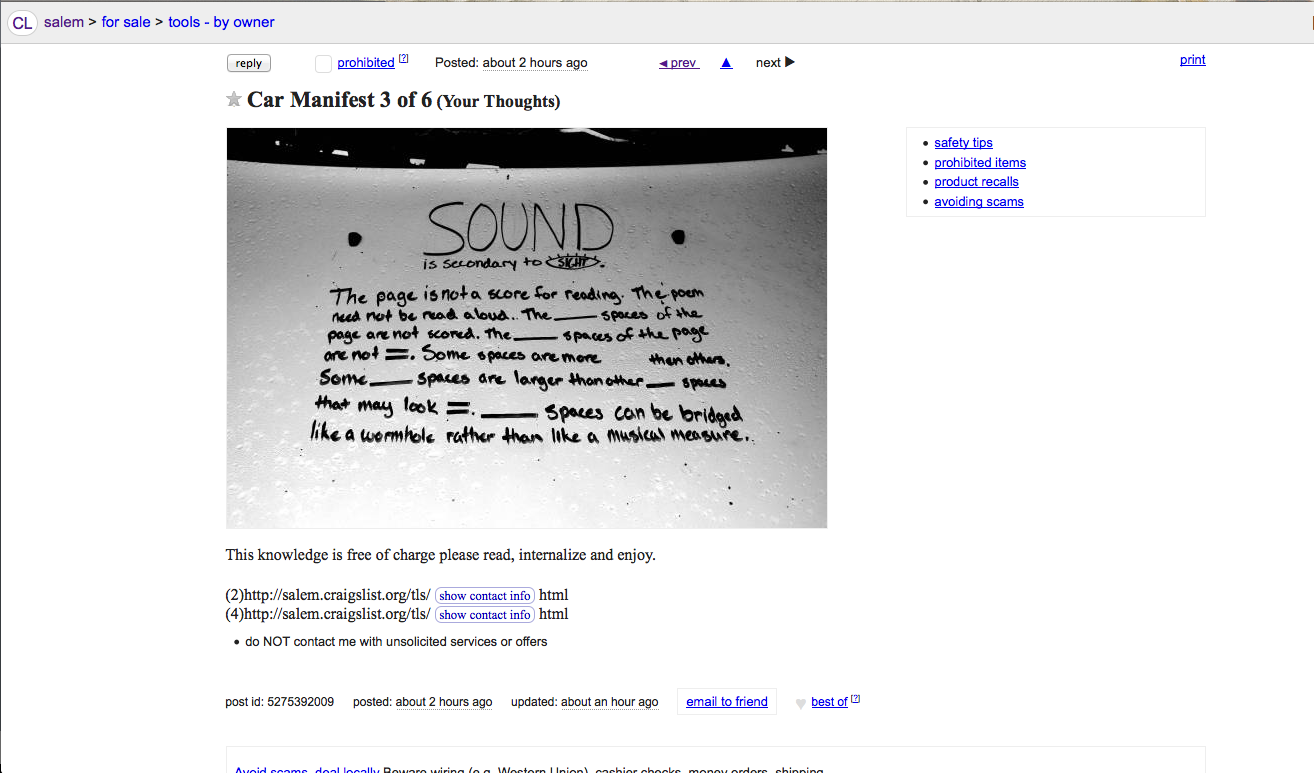 CL salem > for sale > tools - by owner
reply prohibited [?] Posted: about 2 hours ago ◄ prev ▲ next ▶ print
★ Car Manifest 3 of 6 (Your Thoughts)
SOUND
is secondary to SIGHT.
The page is not a score for reading. The poem
need not be read aloud. The ____ spaces of the
page are not scored. The ____ spaces of the page
are not =. Some spaces are more then others.
Some ____ spaces are larger than other ___ spaces
that may look =. ____ spaces can be bridged
like a wormhole rather than like a musical measure.
• safety tips
• prohibited items
• product recalls
• avoiding scams
This knowledge is free of charge please read, internalize and enjoy.
(2)http://salem.craigslist.org/tls/ show contact info html
(4)http://salem.craigslist.org/tls/ show contact info html
• do NOT contact me with unsolicited services or offers
post id: 5275392009 posted: about 2 hours ago updated: about an hour ago email to friend ♥ best of [?]
Avoid scams, deal locally Beware wiring (e.g. Western Union), cashier checks, money orders, shipping.